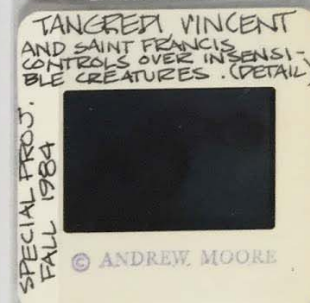 TANGREDI VINCENT
AND SAINT FRANCIS
CONTROLS OVER INSENSI-
BLE CREATURES. (DETAIL)
SPECIAL PROJ.
FALL 1984
© ANDREW MOORE